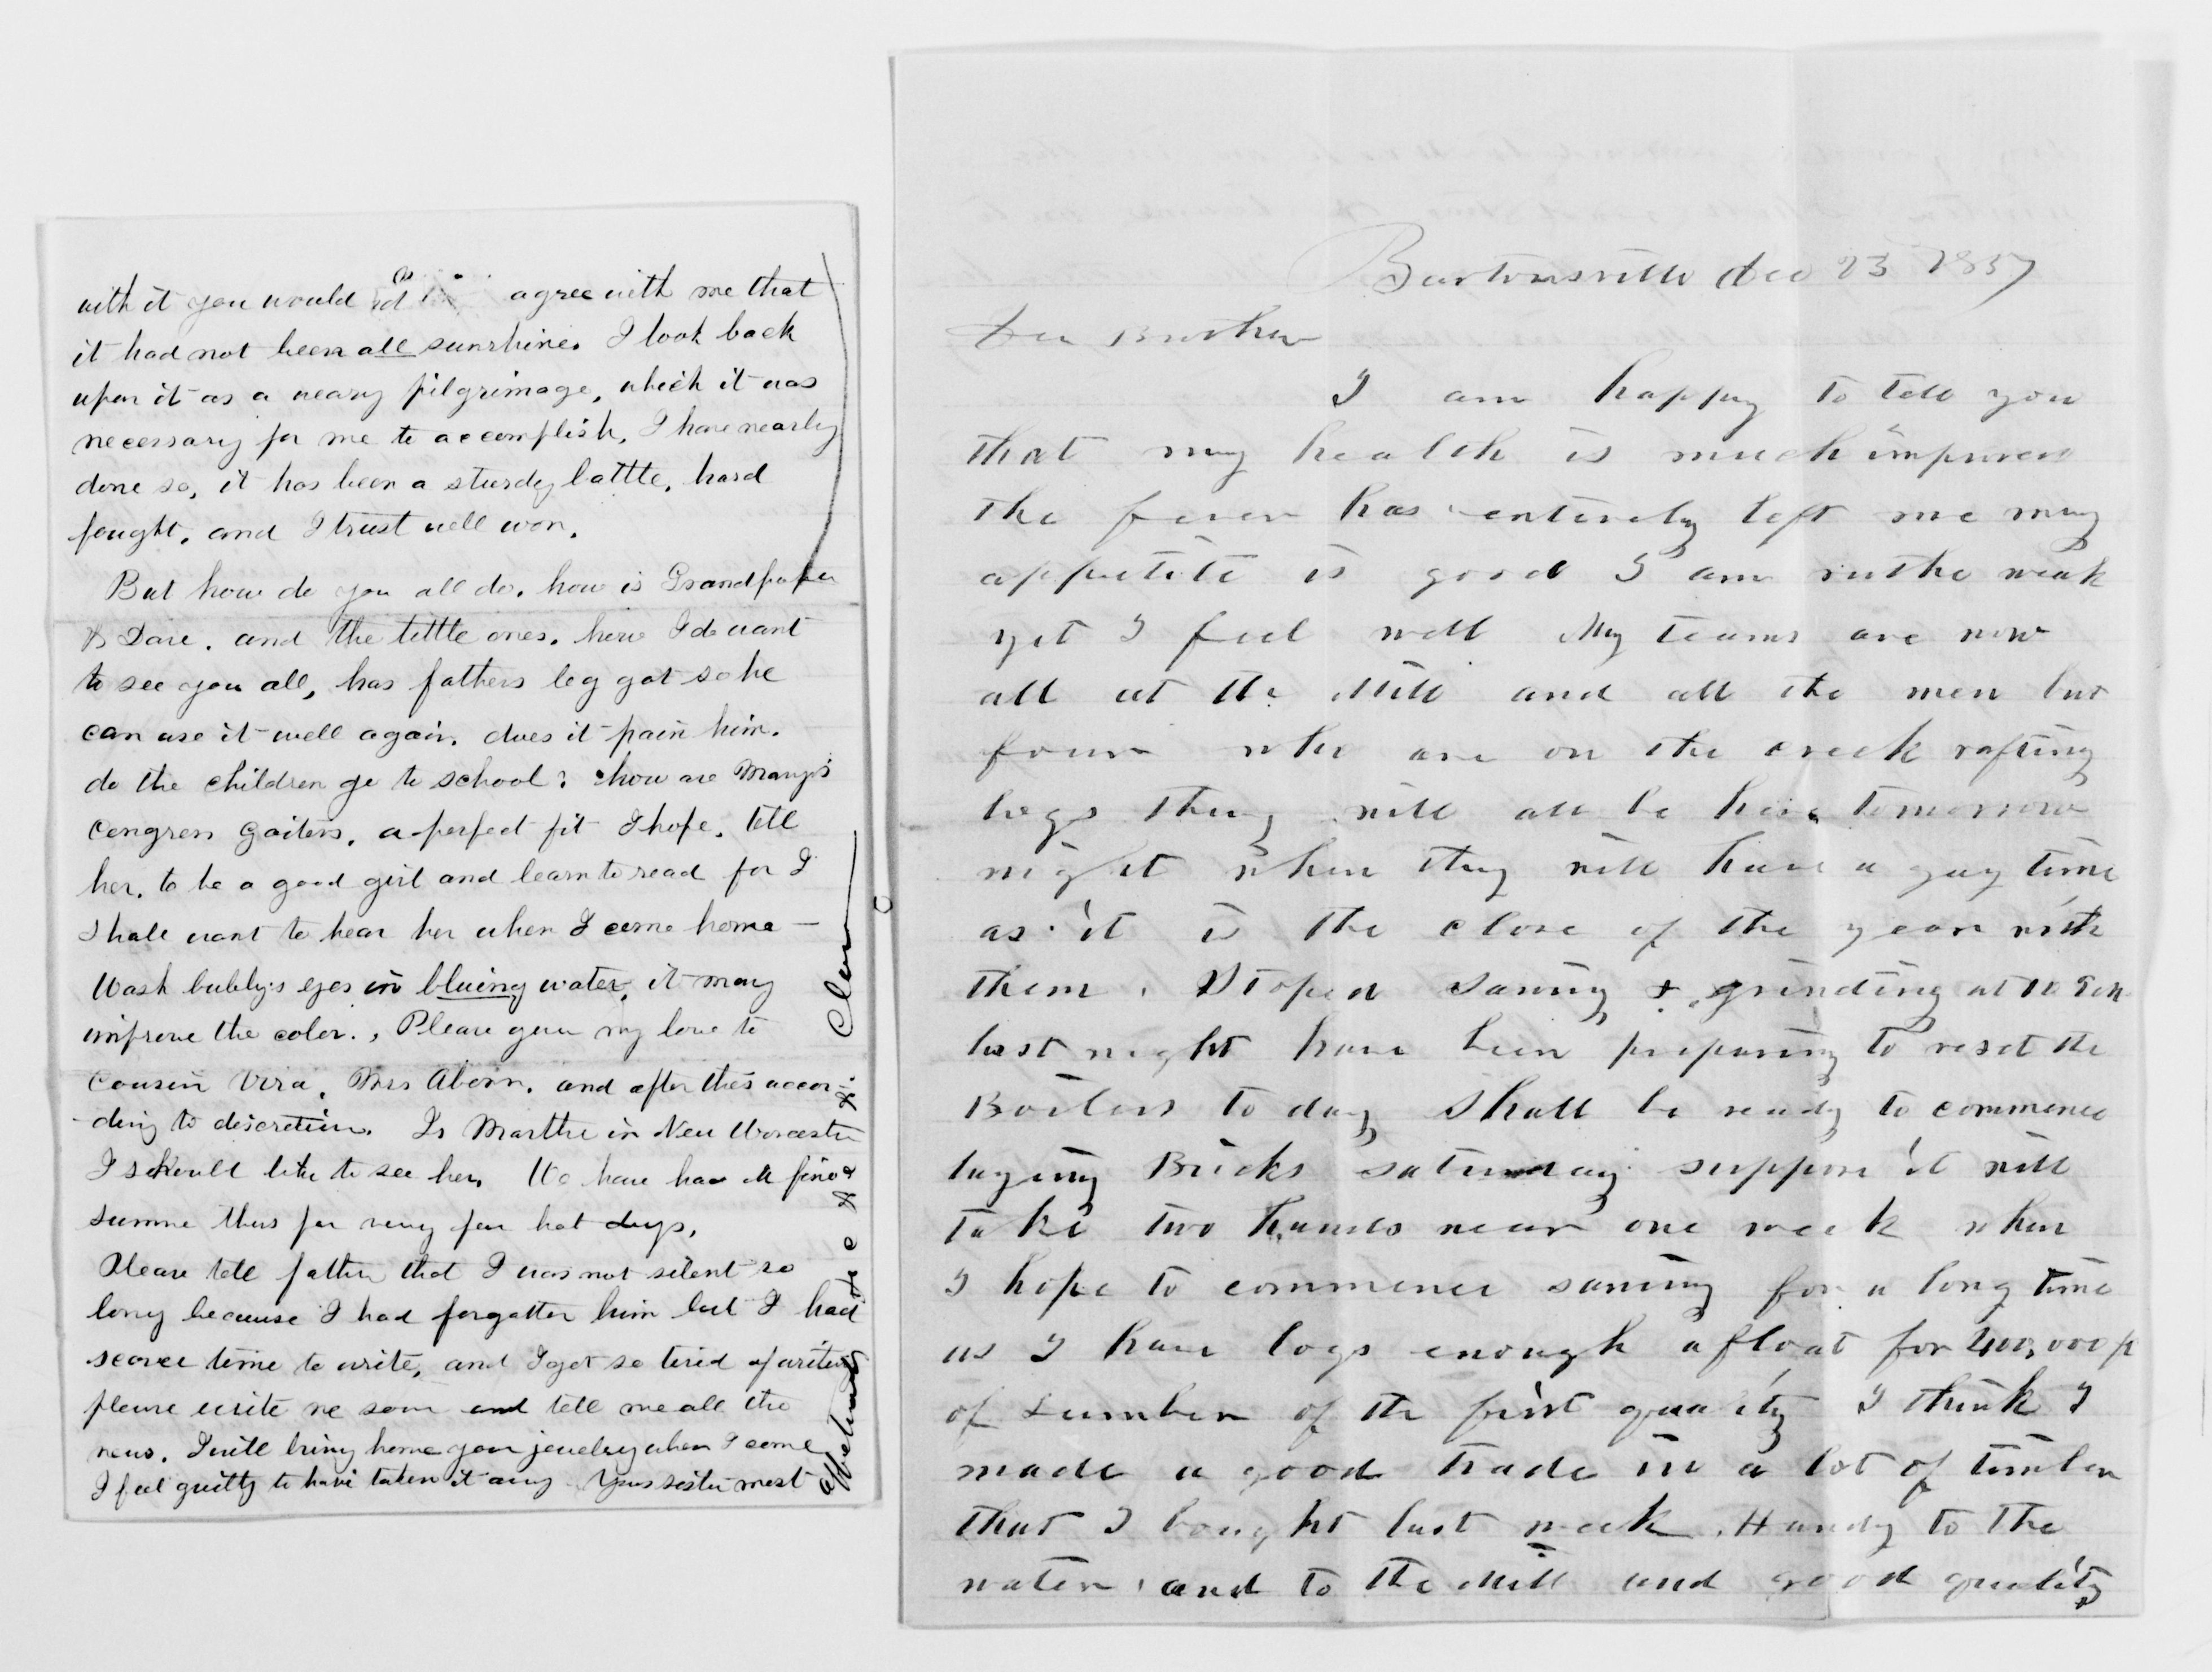 with it you would as agree with me that
it had not been all sunshine. I look back
upon it as a weary pilgrimage, which it was
necessary for me to accomplish, I have nearly
done so, it has been a sturdy battle, hard
fought, and I trust well won.
But how do you all do. how is Grandpapa
& Dave. and the little ones. how I do want
to see you all, has fathers leg got so he
can use it well again. does it pain him.
do the children go to school? how are Mary's
Congress gaiters. a perfect fit I hope. tell
her. to be a good girl and learn to read for I
shall want to hear her when I come home —
Wash bubby's eyes in bluing water, it may
improve the color. , Please give my love to
Cousin Vira, Mrs Aborn. and after this accor-
-ding to discretion. Is Martha in New Worcester
I should like to see her. We have had a fine
summe thus far very few hot days.
Please tell father that I was not silent so
long because I had forgotten him but I had
scarce time to write, and I get so tired of writing
please write me soon and tell me all the
news. I will bring home your jewelry when I come
I feel guilty to have taken it away Your sister most
affectionately
Clara
Burtonsville Dec 23 1857
Dear Brother
I am happy to tell you
that my health is much improved
the fever has entirely left me my
appetite is good I am rathe weak
yet I feel well My teams are now
all at the Mill and all the men but
four who are on the creek rafting
logs they will all be here tomorrow
night when they will have a gay time
as it is the close of the year with
them. Stoped sawing & grinding at 10
last night have been preparing to reset the
Boilers to day shall be ready to commence
laying Bricks saturday suppose it will
take two hands near one week when
I hope to commence sawing for a long time
as I have logs enough afloat for 400,000 ft
of Lumber of the first quality I think I
made a good trade in a lot of timber
that I bought last week. Handy to the
water and to the Mill and good quality